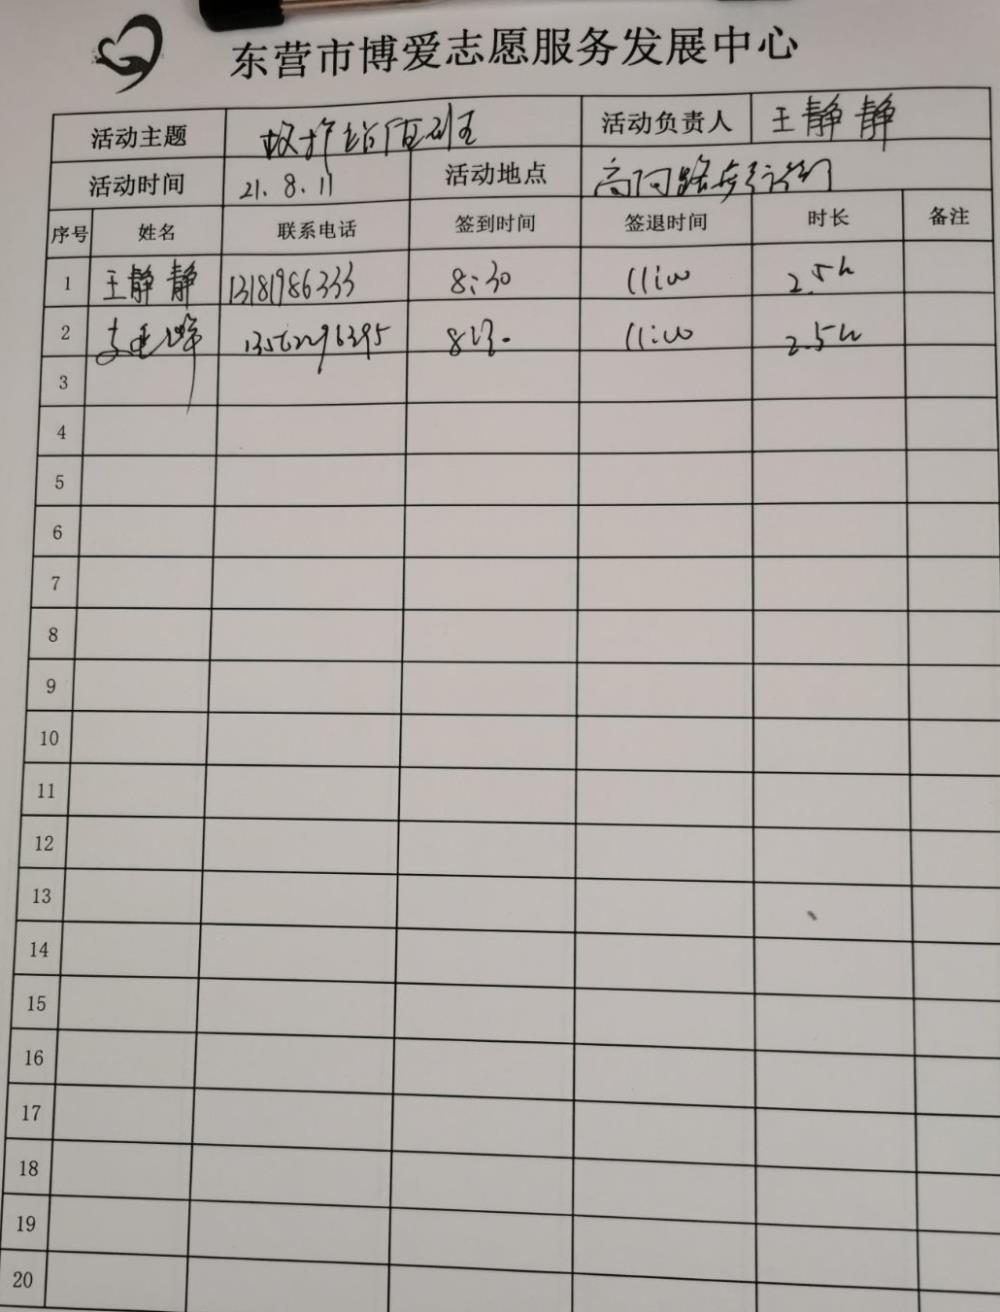 东营市博爱志愿服务发展中心
活动主题 值班 活动负责人 王静静
活动时间 21.8.11 活动地点
序号 姓名 联系电话 签到时间 签退时间 时长 备注
1 王静静 13181986333 8:30 11:00 2.5h
2 8:30 11:00 2.5h
3
4
5
6
7
8
9
10
11
12
13
14
15
16
17
18
19
20